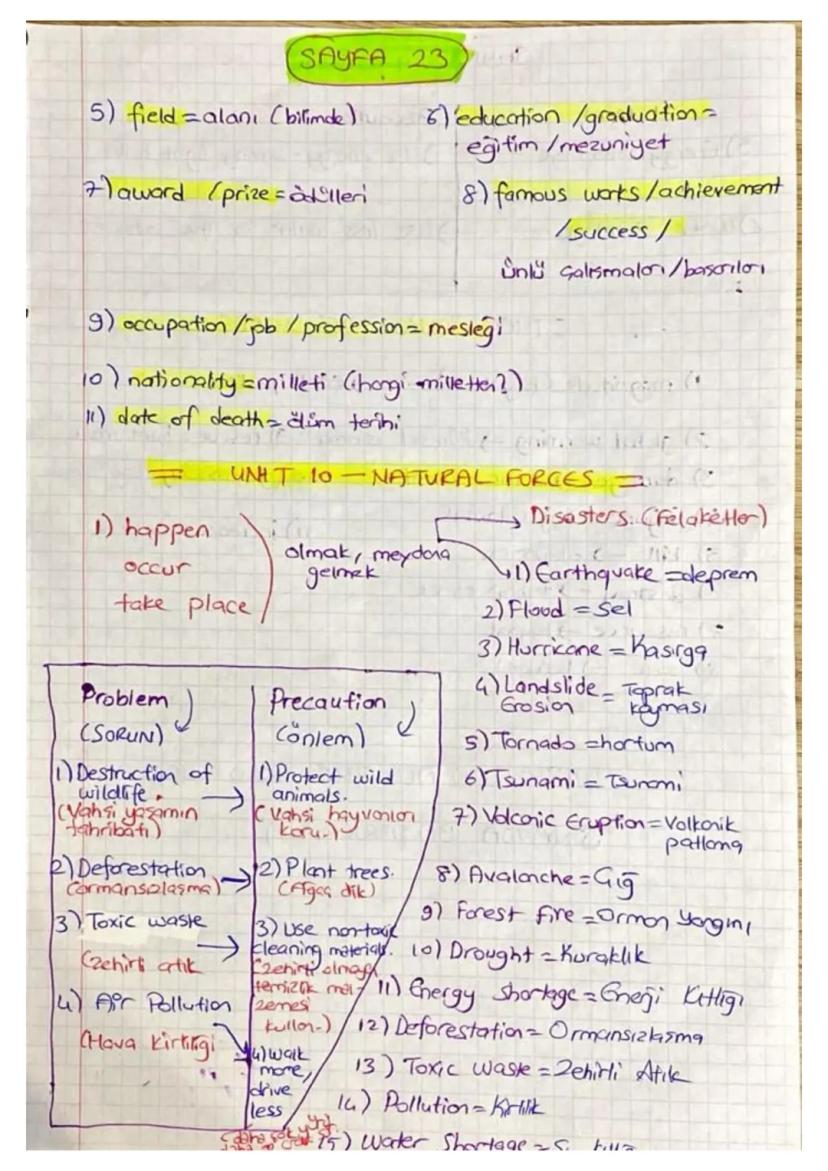 SAYFA 23
5) field = alanı (bilimde)
6) education / graduation =
eğitim / mezuniyet
7) award / prize = ödülleri
8) famous works / achievement
/ success /
ünlü çalışmaları / başarıları
9) occupation / job / profession = mesleği
10) nationality = milleti (hangi milletten?)
11) date of death = ölüm tarihi
= UNIT 10 — NATURAL FORCES =
1) happen
occur
take place
olmak, meydana
gelmek
Disasters: (Felaketler)
1) Earthquake = deprem
2) Flood = Sel
3) Hurricane = Kasırga
4) Landslide = Toprak
Erosion kayması
5) Tornado = hortum
6) Tsunami = Tsunami
7) Volcanic Eruption = Volkanik
patlama
8) Avalanche = Çığ
9) Forest fire = Orman Yangını
10) Drought = Kuraklık
11) Energy Shortage = Enerji Kıtlığı
12) Deforestation = Ormansızlaşma
13) Toxic Waste = Zehirli Atık
14) Pollution = Kirlilik
15) Water Shortage = S
Problem
(SORUN)
1) Destruction of
wildlife.
(Vahşi yaşamın
tahribatı)
2) Deforestation
(ormansızlaşma)
3) Toxic waste
(zehirli atık
4) Air Pollution
(Hava Kirliliği
Precaution
(önlem)
1) Protect wild
animals.
(Vahşi hayvanları
koru.)
2) Plant trees.
(Ağaç dik)
3) Use non-toxic
cleaning materials.
(zehirli olmayan
temizlik mal-
zemesi
kullan.)
4) walk
more,
drive
less
(daha çok yürü